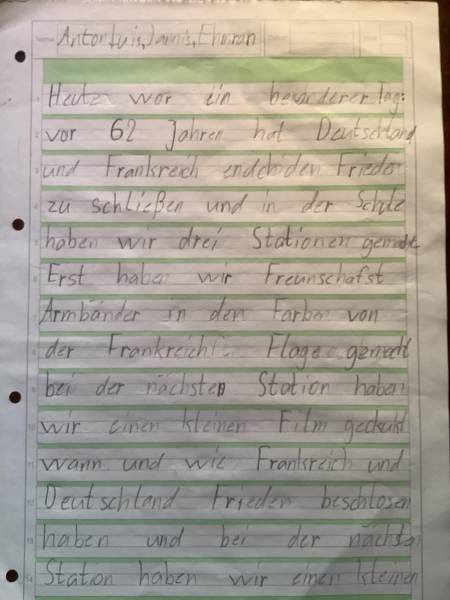 Name Anton, Luis, Jannis, Ehsan
Heute war ein besonderer Tag:
vor 62 Jahren hat Deutschland
und Frankreich endchiden Frieden
zu schließen und in der Schule
haben wir drei Stationen gemacht
Erst haben wir Freunschafst
Armbänder in den Farben von
der Frankreich Flage gemacht
bei der nächsten Station haben
wir einen kleinen Film gekukt
wann und wie Frankreich und
Deutschland Frieden beschlosen
haben und bei der nächsten
Station haben wir einen kleinen